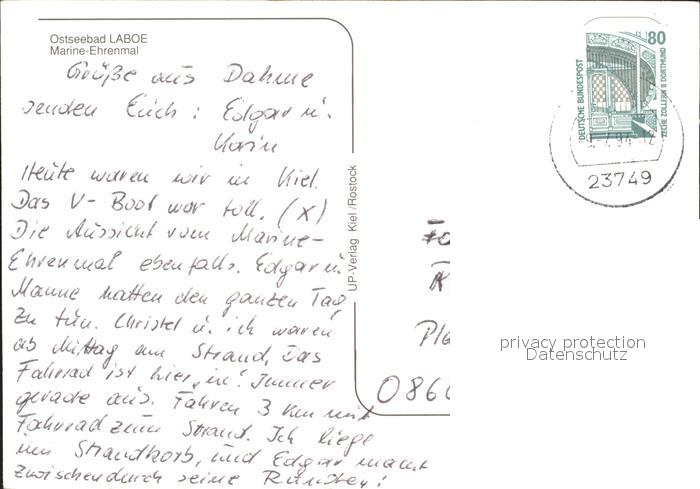 Ostseebad LABOE
Marine-Ehrenmal
Grüße aus Dahme
senden Euch: Edgar u.
Karin
Heute waren wir in Kiel.
Das U-Boot war toll. (X)
Die Aussicht vom Marine-
Ehrenmal ebenfalls. Edgar u.
Manne hatten den ganzen Tag
zu tun. Christel u. ich waren
ab Mittag am Strand. Das
Fahrrad ist hier „in". Immer
gerade aus. Fahren 3 km mit
Fahrrad zum Strand. Ich liege
im Strandkorb, und Edgar macht
zwischendurch seine Runden!
UP-Verlag Kiel/Rostock
80
DEUTSCHE BUNDESPOST
ZECHE ZOLLERN II DORTMUND
23749
Pla
086
privacy protection
Datenschutz